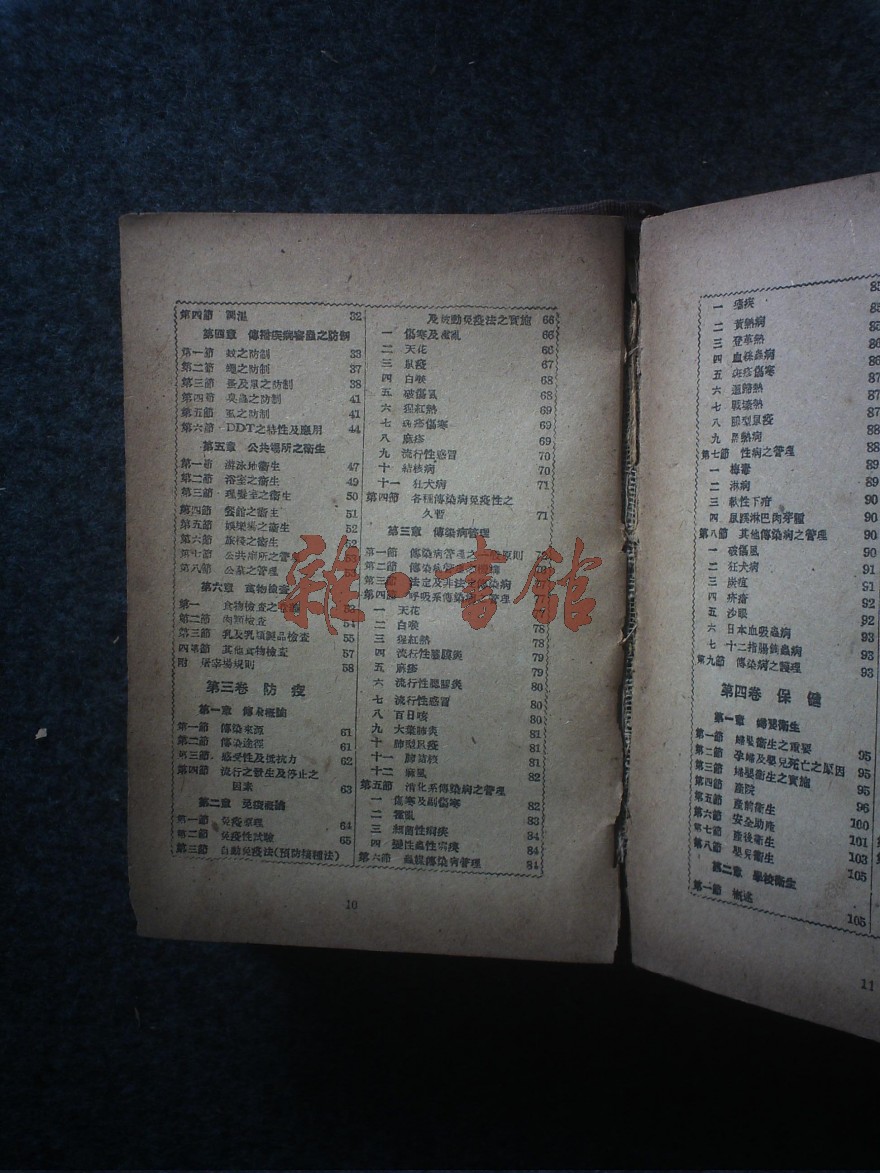 第四節 調溫 32
第四章 傳播疾病害蟲之防制
第一節 蚊之防制 33
第二節 蠅之防制 37
第三節 蚤及鼠之防制 38
第四節 臭蟲之防制 41
第五節 虱之防制 41
第六節 DDT之特性及應用 44
第五章 公共場所之衛生
第一節 游泳池衛生 47
第二節 浴室之衛生 49
第三節 理髮室之衛生 50
第四節 餐館之衛生 51
第五節 娛樂場之衛生 52
第六節 旅棧之衛生 52
第七節 公共廁所之管理 53
第八節 公墓之管理
第六章 食物檢查
第一 食物檢查之 53
第二節 肉類檢查 54
第三節 乳及乳類製品檢查 55
第四節 其他食物檢查 57
附 屠宰場規則 58
第三卷 防疫
第一章 傳染概論
第一節 傳染來源 61
第二節 傳染途徑 61
第三節 感受性及抵抗力 62
第四節 流行之發生及停止之
因素 63
第二章 免疫概論
第一節 免疫原理 64
第二節 免疫性試驗 65
第三節 自動免疫法(預防接種法)
及被動免疫法之實施 66
一 傷寒及霍亂 66
二 天花 66
三 鼠疫 67
四 白喉 68
五 破傷風 68
六 猩紅熱 69
七 斑疹傷寒 69
八 麻疹 69
九 流行性感冒 70
十 結核病 70
十一 狂犬病 71
第四節 各種傳染病免疫性之
久暫 71
第三章 傳染病管理
第一節 傳染病管理之一般原則 72
第二節 傳染病管理之機構 77
第三節 法定及非法定傳染病 77
第四節 呼吸系傳染病之管理 77
一 天花 77
二 白喉 78
三 猩紅熱 78
四 流行性腦膜炎 79
五 麻疹 79
六 流行性腮腺炎 80
七 流行性感冒 80
八 百日咳 81
九 大葉肺炎 81
十 肺型鼠疫 81
十一 肺結核 81
十二 痲風 82
第五節 消化系傳染病之管理
一 傷寒及副傷寒 82
二 霍亂 83
三 細菌性痢疾 84
四 變性蟲性痢疾 84
第六節 蟲媒傳染病管理 84
10
85
一 瘧疾 85
二 黃熱病 85
三 登革熱 86
四 血絲蟲病 86
五 斑疹傷寒 86
六 迴歸熱 87
七 戰壕熱 87
八 腺型鼠疫 87
九 黑熱病 88
第七節 性病之管理 88
一 梅毒 89
二 淋病 89
三 軟性下疳 90
四 鼠蹊淋巴肉芽腫 90
第八節 其他傳染病之管理 90
一 破傷風 90
二 狂犬病 91
三 炭疽 91
四 疥瘡 92
五 沙眼 92
六 日本血吸蟲病 93
七 十二指腸鉤蟲病 93
第九節 傳染病之護理 93
第四卷 保健
第一章 婦嬰衛生
第一節 婦嬰衛生之重要 95
第二節 孕婦及嬰兒死亡之原因 95
第三節 婦嬰衛生之實施 95
第四節 產院 96
第五節 產前衛生 100
第六節 安全助產 101
第七節 產後衛生 103
第八節 嬰兒衛生 105
第二章 學校衛生
第一節 概述 105
11
雜·書館